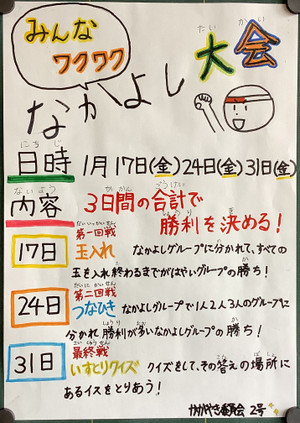 みんな
ワクワク
なかよし
たいかい
大会
にちじ
日時 1月17日(金)24日(金)31日(金)
ないよう
内容 3日間の合計で
勝利を決める!
17日 第一回戦
玉入れ なかよしグループに分かれて、すべての
玉を入れ終わるまでがはやいグループの勝ち!
24日 第二回戦
つなひき なかよしグループで1人2人3人のグループに
分かれ勝利が多いなかよしグループの勝ち!
31日 最終戦
いすとりクイズ クイズをして、その答えの場所に
あるイスをとりあう!
かがやき委員会 2号